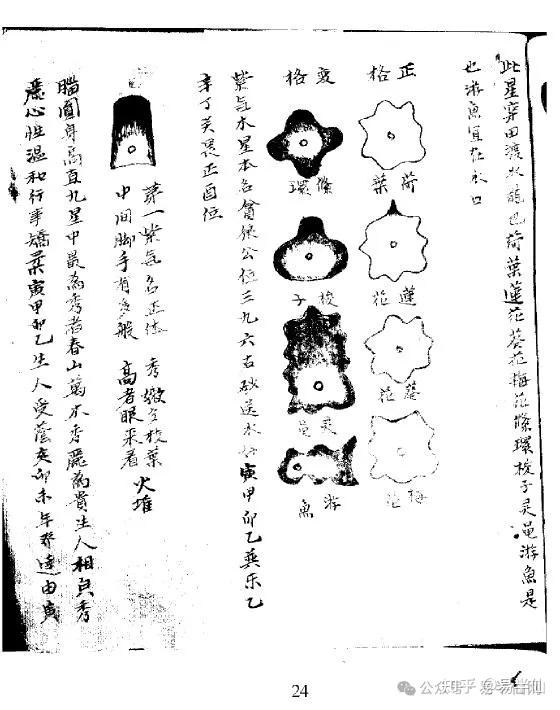 此星穿田渡水龍也荷葉蓮花葵花梅花絛環梭子灵黽游魚是
也游魚宜在水口
正格
荷葉
蓮花
葵花
梅花
变格
絛環
梭子
灵黽
游魚
紫气木星本名會狠公位三九六古砂送水好寅甲卯乙葬乐乙
辛丁关畏正酉位
第一紫气名正体 秀嫩全枝葉 火堆
中间脚手有多般 高者眼来看
腦圓身高直九星中最為秀者春山萬木秀麗為貴生人相貞秀
麗心性温和行事矯柔寅甲卯乙生人受蔭亥卯未年發達由寅
24
公众
知乎